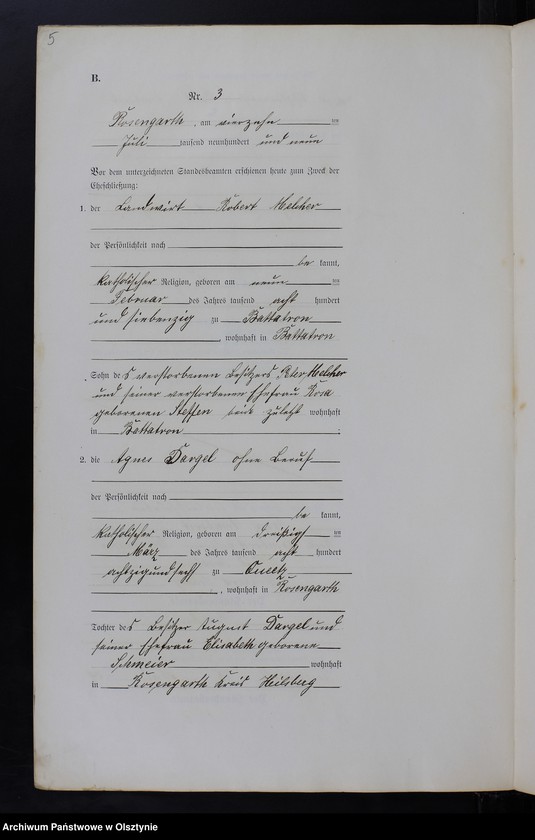 5
B.
Nr. 3
Rosengarth, am vierzehn ten
Juli tausend neunhundert und neun
Vor dem unterzeichneten Standesbeamten erschienen heute zum Zweck der
Eheschließung:
1. der Landwirt Robert Melcher
der Persönlichkeit nach
be kannt,
katholischer Religion, geboren am neun ten
Februar des Jahres tausend acht hundert
und siebenzig zu Battatron
, wohnhaft in Battatron
Sohn des verstorbenen Besitzers Peter Melcher
und seiner verstorbenen Ehefrau Rosa
geborenen Steffen beide zuletzt wohnhaft
in Battatron
2. die Agnes Dargel ohne Beruf
der Persönlichkeit nach
be kannt,
katholischer Religion, geboren am dreißigs ten
März des Jahres tausend acht hundert
achtzigundsechs zu Queetz
, wohnhaft in Rosengarth
Tochter des Besitzer August Dargel und
seiner Ehefrau Elisabeth geborene
Schmeier wohnhaft
in Rosengarth Kreis Heilsberg
Archiwum Państwowe w Olsztynie